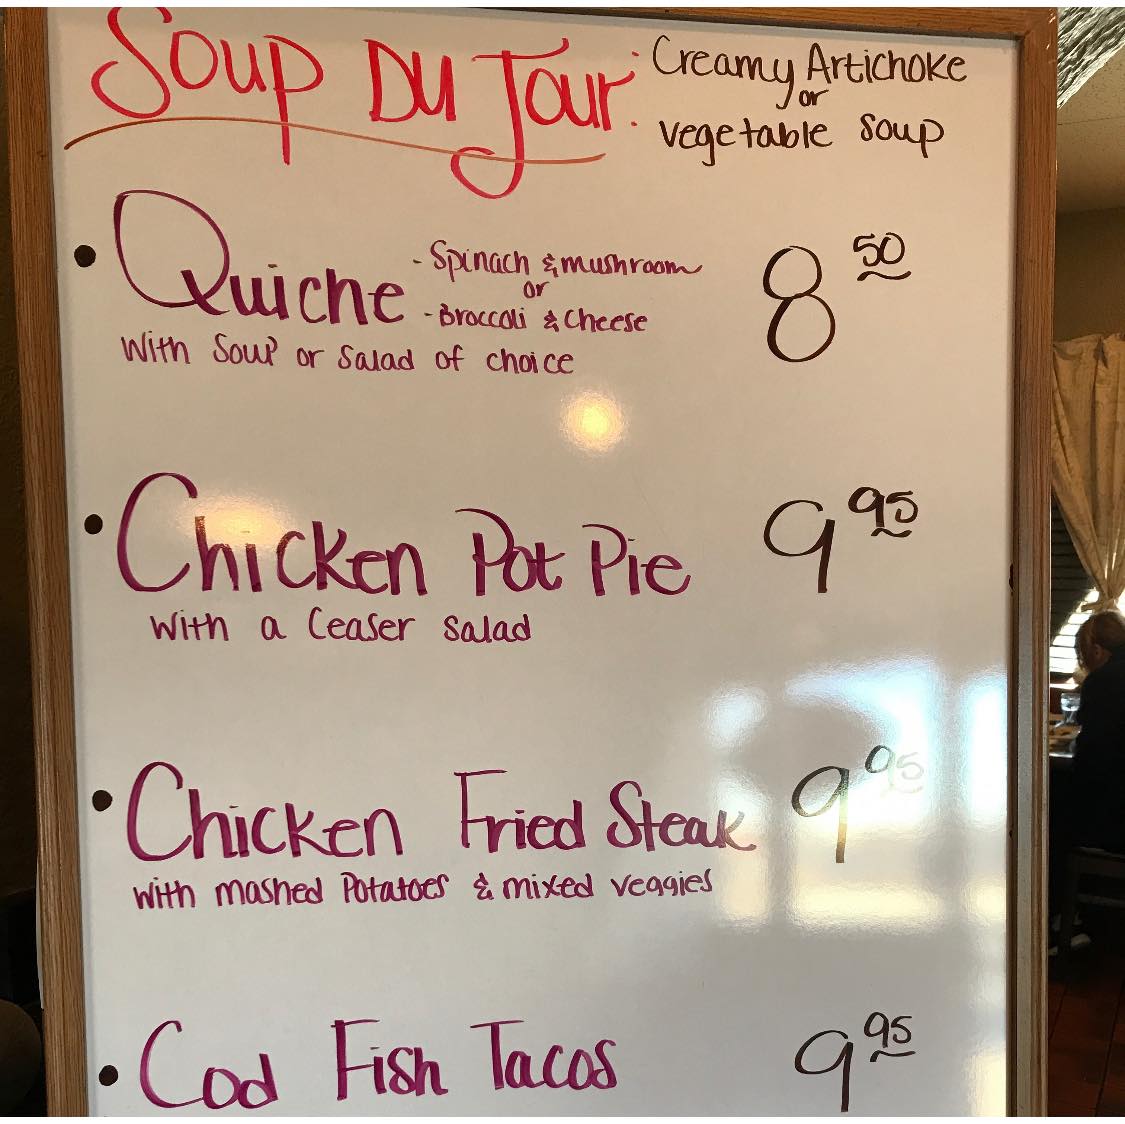 Soup Du Jour: Creamy Artichoke
or
vegetable soup
• Quiche - Spinach & mushroom 8 50
or
- Broccoli & Cheese
With Soup or Salad of choice
• Chicken Pot Pie 9 95
With a Ceaser Salad
• Chicken Fried Steak 9 95
With mashed Potatoes & mixed veggies
• Cod Fish Tacos 9 95